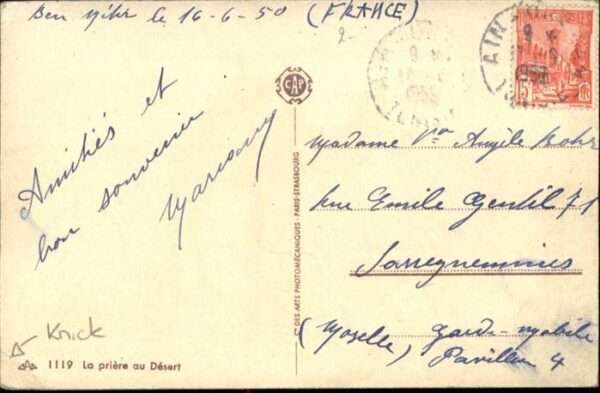 Ben Mihr le 16-6-50 (FRANCE)
2-
CAP
Amitiés et
bon souvenir
Mariany
Madame Vve Angèle Bohr
rue Emile Gentil 71
Sarreguemines
(Moselle) Garde-mobile
Pavillon 4
AIN
9
1950
15
Knick
1119 La prière au Désert
CIE DES ARTS PHOTOMÉCANIQUES - PARIS-STRASBOURG